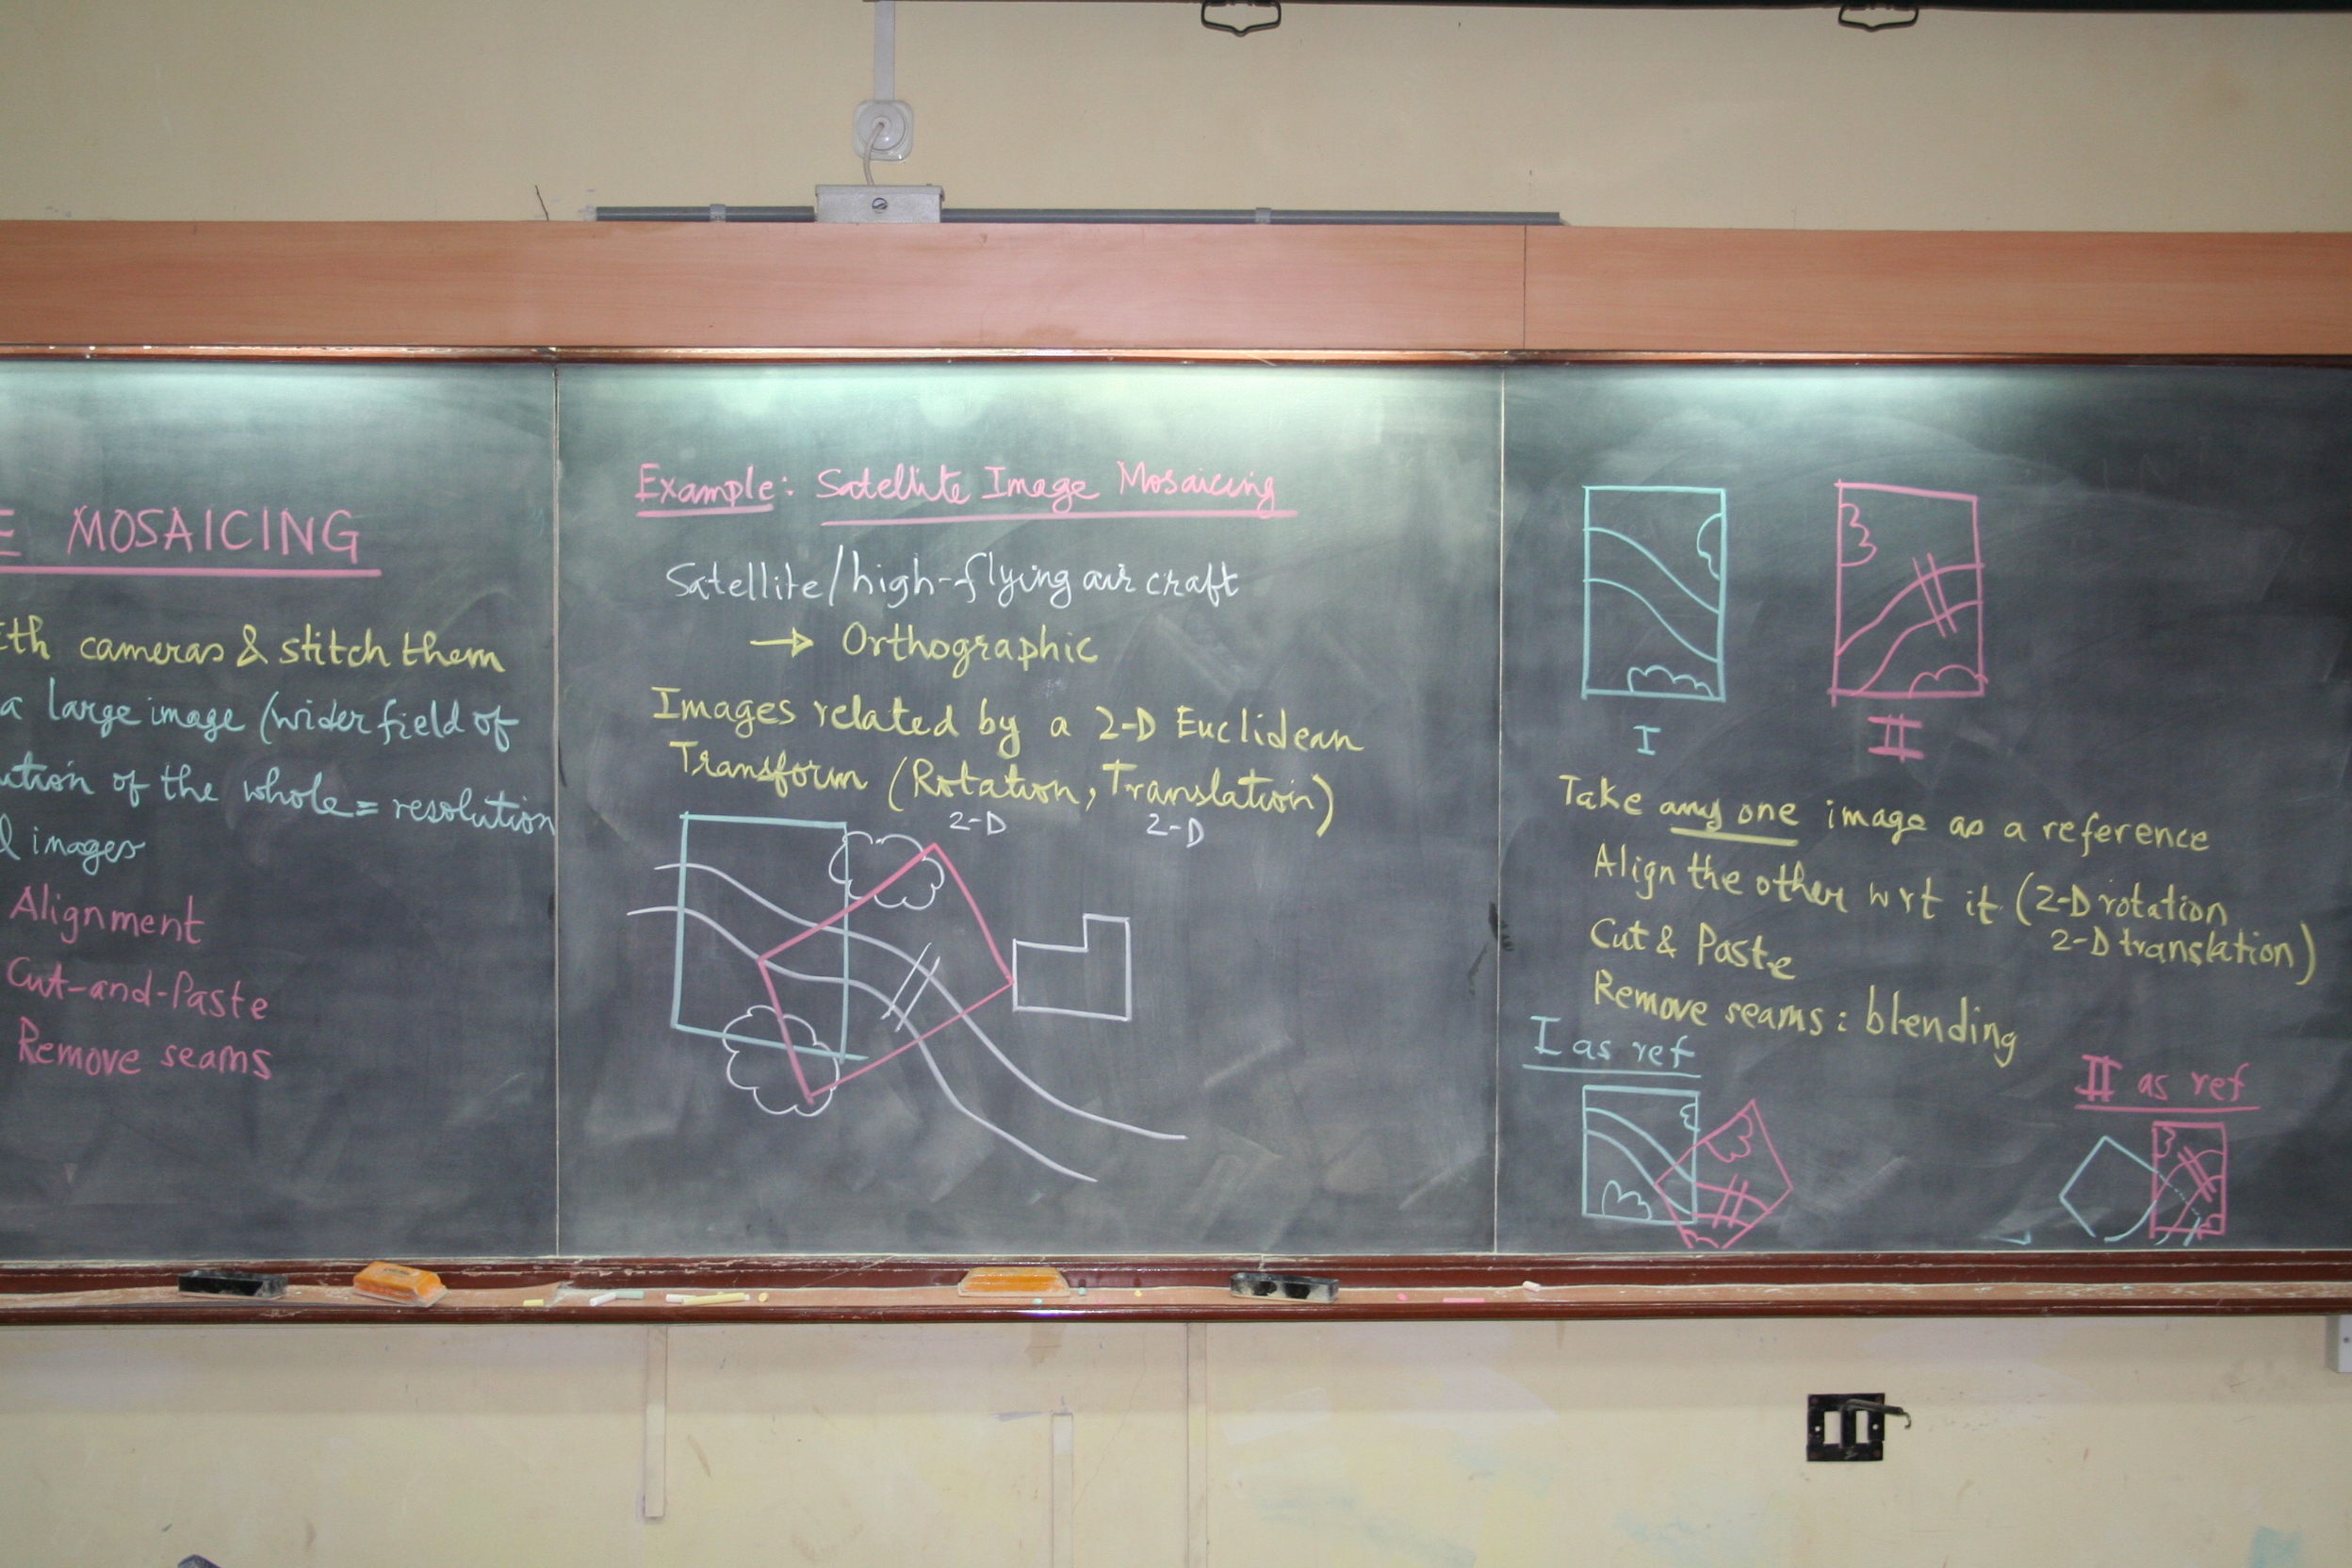 E MOSAICING
ith cameras & stitch them
a large image (wider field of
ution of the whole = resolution
l images
Alignment
Cut-and-Paste
Remove seams
Example: Satellite Image Mosaicing
Satellite/high-flying air craft
→ Orthographic
Images related by a 2-D Euclidean
Transform (Rotation, Translation)
2-D 2-D
I II
Take any one image as a reference
Align the other wrt it (2-D rotation
2-D translation)
Cut & Paste
Remove seams: blending
I as ref
II as ref